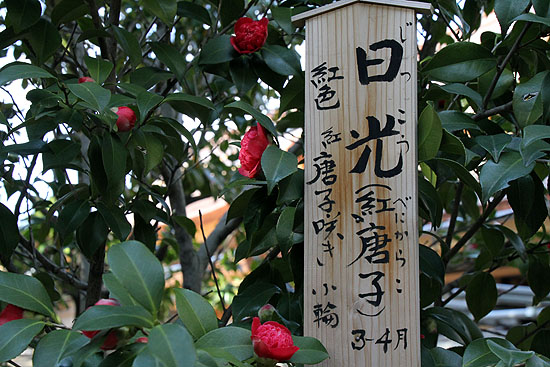 日光(紅唐子)
じつこう べにからこ
3-4月
紅色 紅唐子咲き 小輪